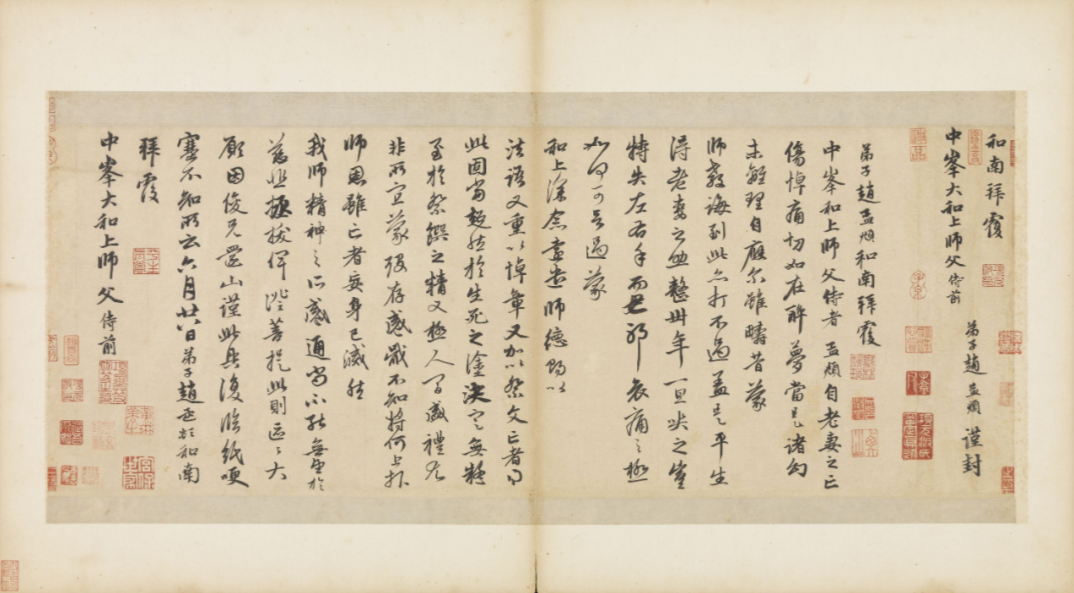 和南拜覆
中峯大和上師父侍前
弟子趙孟頫謹封
弟子趙孟頫和南拜覆
中峯和上師父侍者孟頫自老妻之亡
傷悼痛切如在醉夢當是諸幻
未離理自應尔雖疇昔蒙
師教誨到此亦打不過蓋是平生
得老妻之助整卅年一旦哭之豈
特失左右手而已耶哀痛之極
如何可言過蒙
和上深念遠遣師德賜以
法語又重以悼章又加以祭文亡者得
此固當超然於生死之塗決定無疑
至於祭饌之精又極人間盛禮尤
非所宜蒙歿存感戴不知將何上報
師恩雖亡者妄身已滅然
我師精神之所感通尚不能無望於
慈悲拯拔俾證菩提此則區區大
願因俊兄還山謹此具復臨紙哽
塞不知所云六月廿八日弟子趙孟頫和南
拜覆
中峯大和上師父侍前